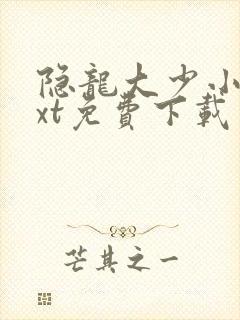 隐龍大少小
xt免費下載
芒其之一